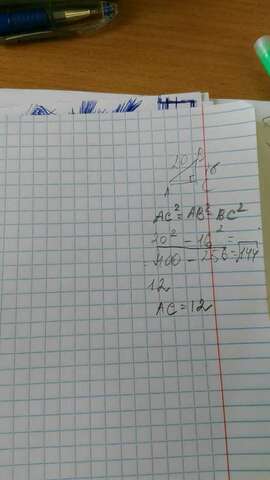 20 B
16
A C
AC² = AB² - BC²
20² - 16² =
= 400 - 256 = √144
12
AC = 12